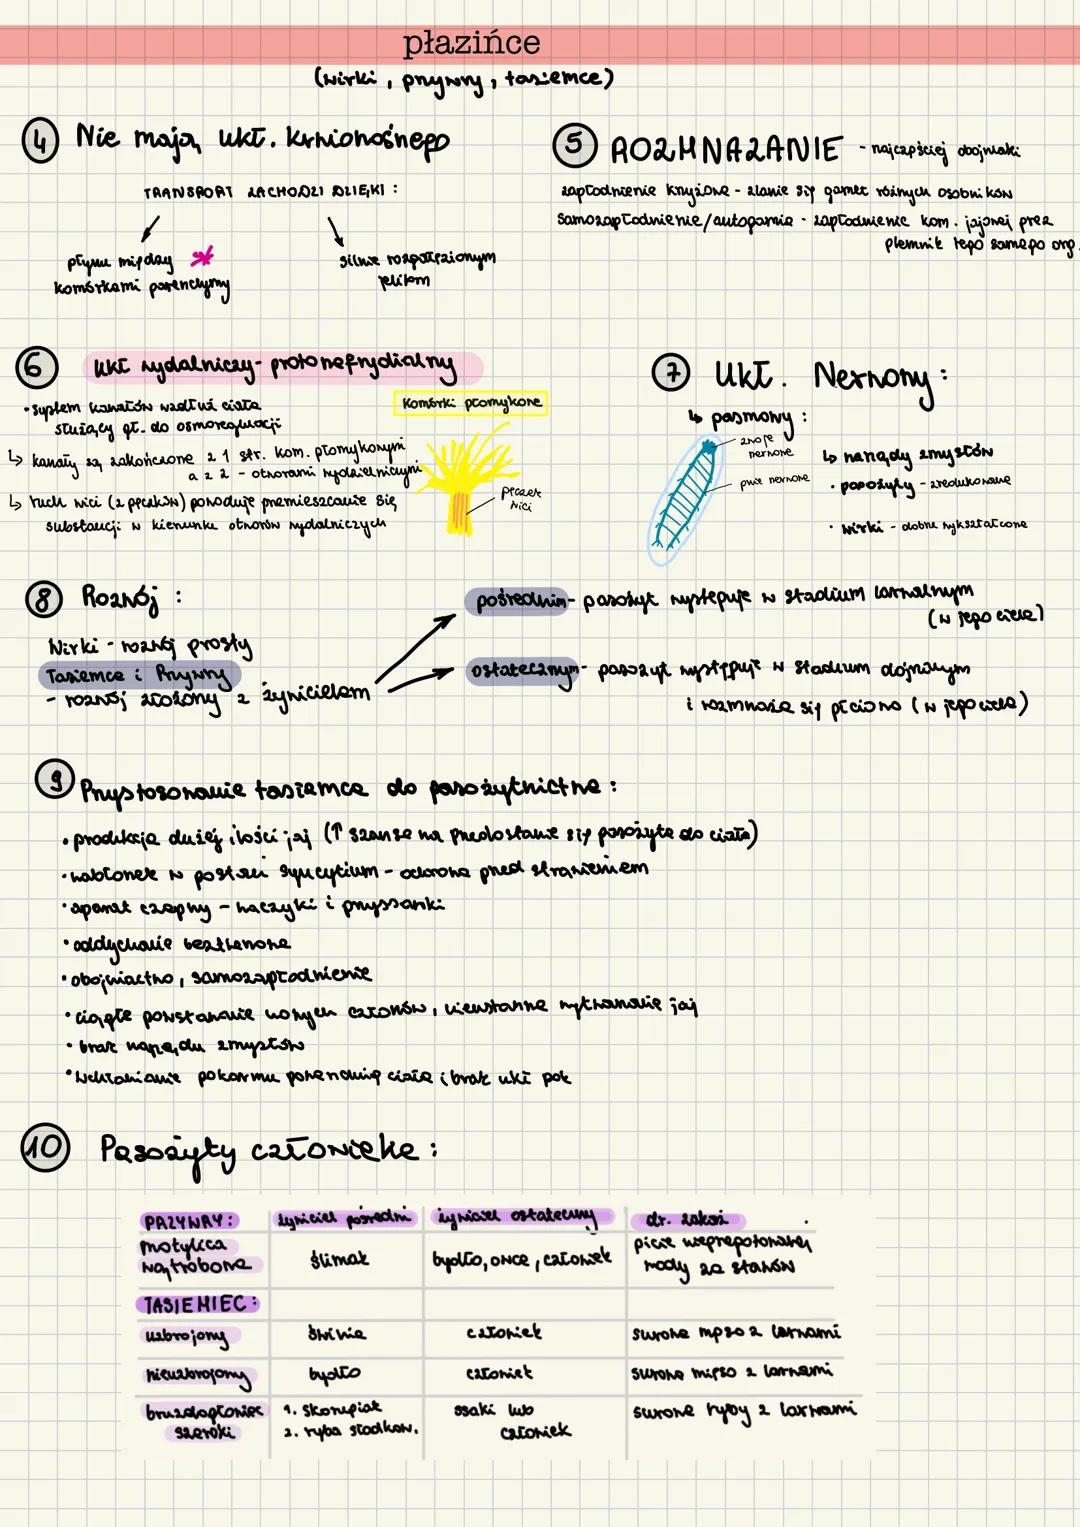 płazińce
(wirki, przywry, tasiemce)
4 Nie mają ukł. krwionośnego
TRANSPORT ZACHODZI DZIĘKI :
płynu między
komórkami parenchymy
silnie rozgałęzionym
jelitom
5 ROZMNAŻANIE - najczęściej obojniaki
zapłodnienie krzyżowe - zlanie się gamet różnych osobników
samozapłodnienie/autogamia - zapłodnienie kom. jajowej przez
plemnik tego samego org.
6 Ukł wydalniczy - protonefrydialny
• system kanałów wzdłuż ciała
służący gł. do osmoregulacji
↳ kanały są zakończone z 1 str. kom. płomykowymi
a z 2 - otworami wydzielniczymi
↳ ruch wici (z pęczków) powoduje przemieszczanie się
substancji w kierunku otworów wydalniczych
Komórki płomykowe
pęczek
wici
7 Ukł. Nerwowy :
↳ pasmowy :
zwoje
nerwowe
pnie nerwowe
↳ narządy zmysłów
• pasożyty - zredukowane
• wirki - dobrze wykształcone
8 Rozwój :
Wirki - rozwój prosty
Tasiemce i Przywry
- rozwój złożony z żywicielem
pośrednim - pasożyt występuje w stadium larwalnym
(w jego ciele)
ostatecznym - pasożyt występuje w stadium dojrzałym
i rozmnaża się płciowo (w jego ciele)
9 Przystosowanie tasiemca do pasożytnictwa :
• produkcja dużej ilości jaj (↑ szanse na przedostanie się pasożyta do ciała)
• nabłonek w postaci syncytium - ochrona przed strawieniem
• aparat czepny - haczyki i przyssawki
• oddychanie beztlenowe
• obojniactwo, samozapłodnienie
• ciągłe powstawanie nowych członów, nieustanne wytwarzanie jaj
• brak narządu zmysłów
• wchłanianie pokarmu powierzchnią ciała i brak ukł pok
10 Pasożyty człowieka :
PRZYWRY: żywiciel pośredni żywiciel ostateczny dr. zakaż
motylica
wątrobowa ślimak bydło, owce, człowiek picie nieprzegotowanej
wody ze stawów
TASIEMIEC:
uzbrojony świnia człowiek surowe mięso z larwami
nieuzbrojony bydło człowiek surowe mięso z larwami
bruzdogłowiec
szeroki 1. skorupiak
2. ryba słodkow. ssaki lub
człowiek surowe ryby z larwami